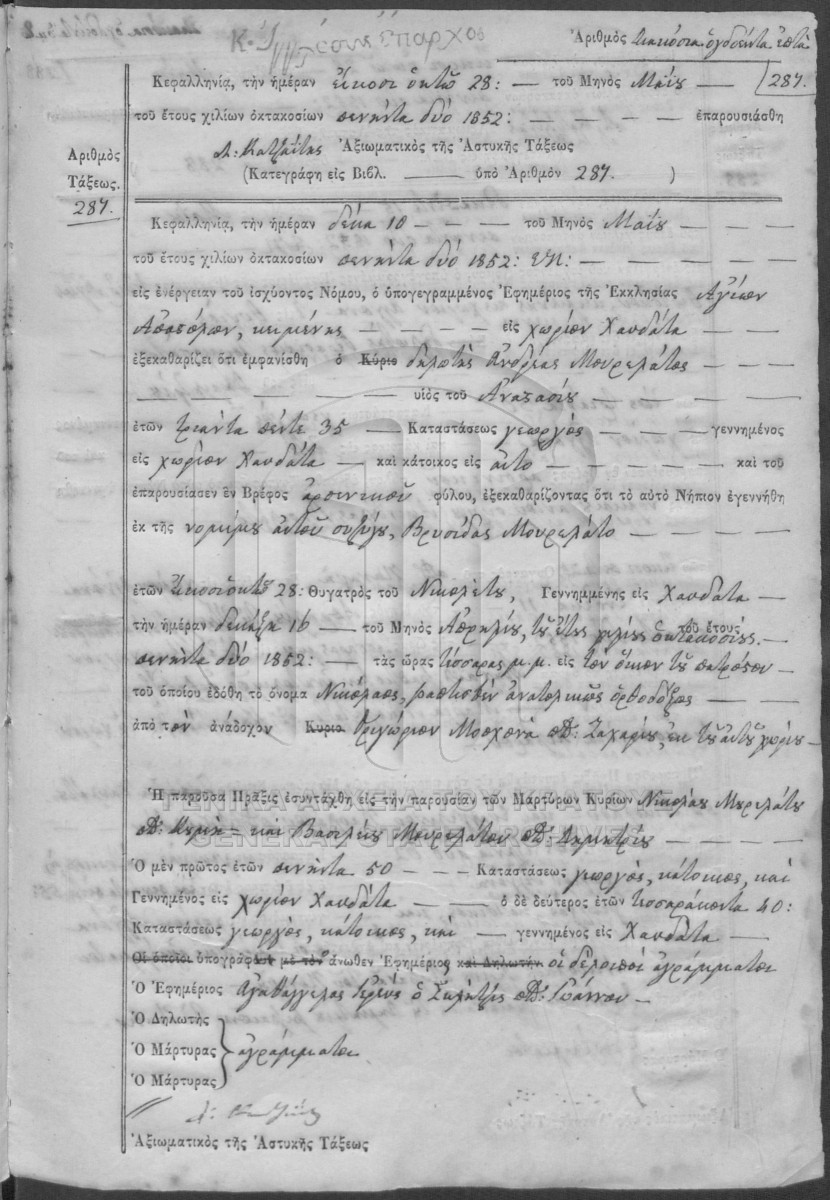 Ἀριθμὸς διακόσια ὀγδοῆντα ἑπτὰ
287.
Κεφαλληνίᾳ, τὴν ἡμέραν εἴκοσι ὀκτὼ 28: — τοῦ Μηνὸς Μαΐου —
τοῦ ἔτους χιλίων ὀκτακοσίων πενῆντα δύο 1852: — — — — ἐπαρουσιάσθη
Ἀξιωματικὸς τῆς Ἀστυκῆς Τάξεως
(Κατεγράφη εἰς Βιβλ. —— ὑπὸ Ἀριθμὸν 287. )
Ἀριθμὸς
Τάξεως.
287.
Κεφαλληνίᾳ, τὴν ἡμέραν δέκα 10 — — — τοῦ Μηνὸς Μαΐου — — —
τοῦ ἔτους χιλίων ὀκτακοσίων πενῆντα δύο 1852: — — — — —
εἰς ἐνέργειαν τοῦ ἰσχύοντος Νόμου, ὁ ὑπογεγραμμένος Ἐφημέριος τῆς Ἐκκλησίας Ἁγίων
Ἀποστόλων, κειμένης — — — — — εἰς χωρίον Χαυδάτα — —
ἐξεκαθαρίζει ὅτι ἐμφανίσθη ὁ Κύριο δηλωτὴς Ἀνδρέας Μουρελάτος — — —
— — — υἱὸς τοῦ Ἀναστασίου — — —
ἐτῶν τριάντα πέντε 35 — Καταστάσεως γεωργὸς — — — γεννημένος
εἰς χωρίον Χαυδάτα — καὶ κάτοικος εἰς αὐτὸ — — — — καὶ τοῦ
ἐπαρουσίασεν ἓν Βρέφος ἀρσενικοῦ φύλου, ἐξεκαθαρίζοντας ὅτι τὸ αὐτὸ Νήπιον ἐγεννήθη
ἐκ τῆς νομίμου αὐτοῦ συζύγου, Βρυσίδας Μουρελάτο — — — —
ἐτῶν εἴκοσι ὀκτὼ 28: Θυγατρὸς τοῦ Νικολέτου, Γεννημμένης εἰς Χαυδάτα —
τὴν ἡμέραν δεκάξη 16 — τοῦ Μηνὸς Ἀπριλίου, τοῦ ἔτους χιλίους ὀκτακοσίους — τοῦ ἔτους
πενῆντα δύο 1852: — τὰς ὥρας τέσσαρας μ.μ. εἰς τὸν οἶκον τοῦ πατρός του —
τοῦ ὁποίου ἐδόθη τὸ ὄνομα Νικόλαος, βαπτισθὲν ἀνατολικῶς ὀρθοδόξως — —
ἀπὸ τὸν ἀνάδοχον Κυριο Γρηγόριον Μοσχονᾶ ποτὲ: Ζαχαρίου, ἐκ τοῦ αὐτοῦ χωρίου —
Ἡ παροῦσα Πρᾶξις ἐσυντάχθη εἰς τὴν παρουσίαν τῶν Μαρτύρων Κυρίων Νικολάου Μουρελάτου
καὶ Βασιλείου Μουρελάτου ποτὲ: Δημητρίου — — — —
Ὁ μὲν πρῶτος ἐτῶν πενῆντα 50 — — — Καταστάσεως γεωργὸς, κάτοικος, καὶ
Γεννημένος εἰς χωρίον Χαυδάτα — — — ὁ δὲ δεύτερος ἐτῶν τεσσαράκοντα 40:
Καταστάσεως γεωργὸς, κάτοικος, καὶ — γεννημένος εἰς Χαυδάτα —
Οἱ ὁποῖοι ὑπογράφ με τον ἄνωθεν Ἐφημέριος καὶ Δηλωτὴν οἱ δὲ λοιποὶ ἀγράμματοι
Ὁ Ἐφημέριος Ἀγαθάγγελος Ἱερεὺς ὁ ποτὲ: Ἰωάννου —
Ὁ Δηλωτὴς
Ὁ Μάρτυρας ἀγράμματοι
Ὁ Μάρτυρας
Ἀξιωματικὸς τῆς Ἀστυκῆς Τάξεως
ΓΕΝΙΚΑ ΑΡΧΕΙΑ ΤΟΥ ΚΡΑΤΟΥΣ
GENERAL STATE ARCHIVES